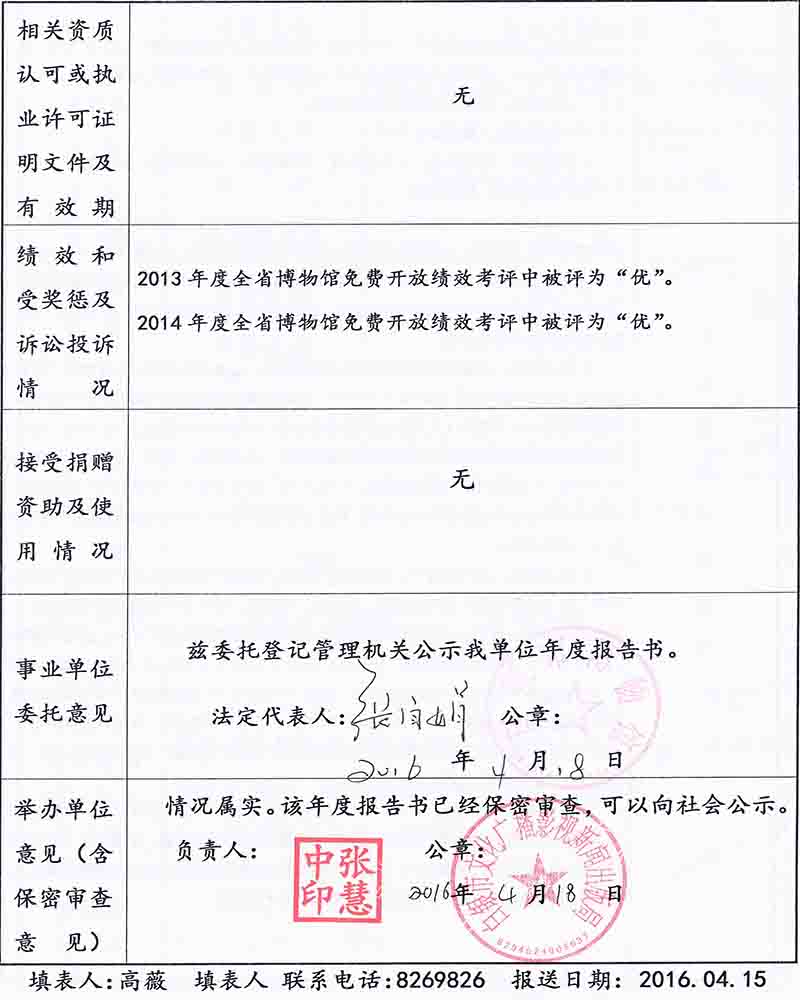 相关资质
认可或执
业许可证
明文件及
有效期
无
绩效和
受奖惩及
诉讼投诉
情况
2013年度全省博物馆免费开放绩效考评中被评为“优”。
2014年度全省博物馆免费开放绩效考评中被评为“优”。
接受捐赠
资助及使
用情况
无
事业单位
委托意见
兹委托登记管理机关公示我单位年度报告书。
法定代表人:
公章:
2016年4月18日
举办单位
意见(含
保密审查
意见)
情况属实。该年度报告书已经保密审查,可以向社会公示。
负责人:
张慧
中印
公章:
2016年4月18日
文化广播影视新闻出版局
填表人:高薇 填表人 联系电话:8269826 报送日期: 2016.04.15